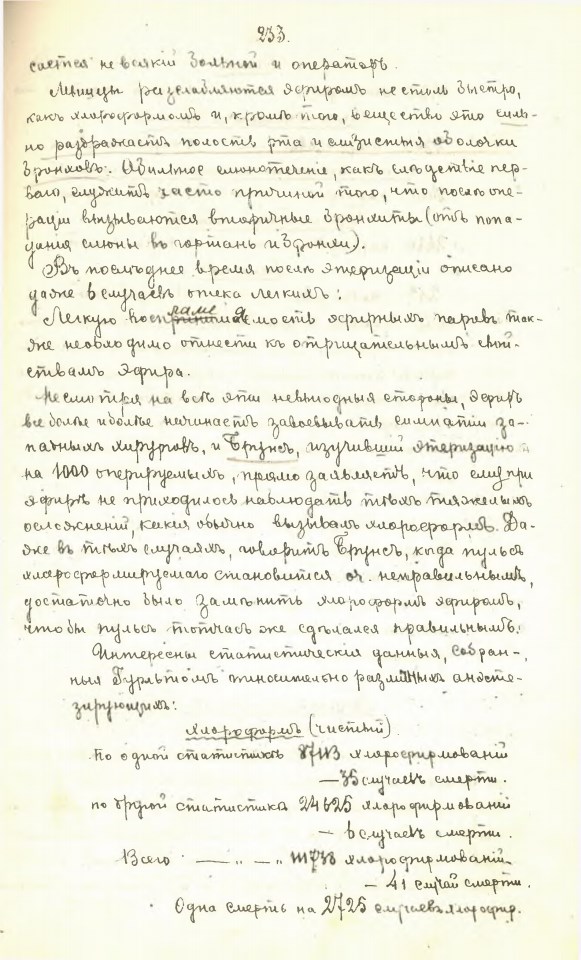 233.
сается не всякій больной и операторъ.
Мышцы разслабляются эфиромъ не столь быстро,
какъ хлороформомъ и, кромѣ того, вещество это силь-
но раздражаетъ полость рта и слизистыя оболочки
бронховъ. Обильное слюнотеченіе, какъ слѣдствіе пер-
ваго, служитъ часто причиной того, что послѣ опе-
раціи вызываются вторичные бронхиты (отъ попа-
данія слюны въ гортань и бронхи).
Въ послѣднее время послѣ этеризаціи описано
даже 6 случаевъ отека легкихъ:
Легкую воспламеняемость эфирныхъ паровъ так-
же необходимо отнести къ отрицательнымъ свой-
ствамъ эфира.
Несмотря на всѣ эти невыгодныя стороны, эфиръ
все болѣе и болѣе начинаетъ завоевывать симпатіи за-
падныхъ хирурговъ, и Брунсъ, изучившій этеризацію
на 1000 оперируемыхъ, прямо заявляетъ, что ему при
эфирѣ не приходилось наблюдать тѣхъ тяжелыхъ
осложненій, какія обычно вызывалъ хлороформъ. Да-
же въ тѣхъ случаяхъ, говоритъ Брунсъ, когда пульсъ
хлороформируемаго становится оч. неправильнымъ,
достаточно было замѣнить хлороформъ эфиромъ,
чтобы пульсъ тотчасъ же сдѣлался правильнымъ.
Интересны статистическія данныя, собран-
ныя Гурльтомъ относительно различныхъ анэсте-
зирующихъ:
Хлороформъ (чистый)
По одной статистикѣ 87113 хлороформированій
— 35 случаевъ смерти.
по другой статистикѣ 24625 хлороформированій
— 6 случаевъ смерти.
Всего — „ — „ 111738 хлороформированій
— 41 случай смерти.
Одна смерть на 2725 случаевъ хлороф.